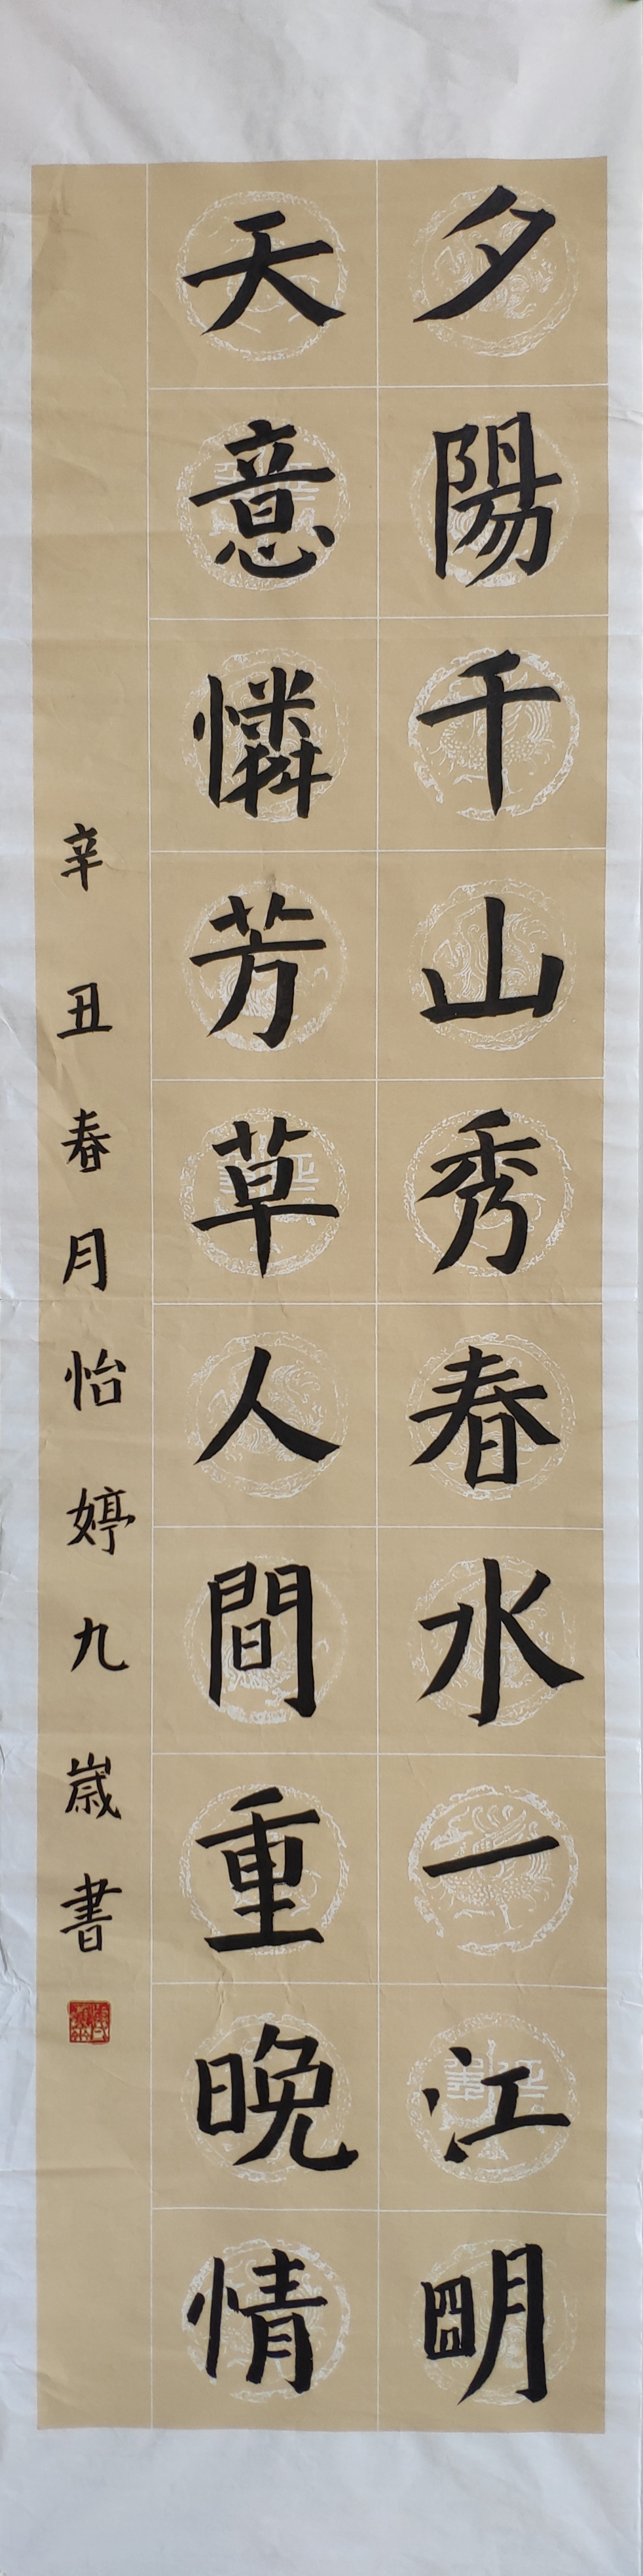 夕陽千山秀春水一江明
天意憐芳草人間重晚情
辛丑春月怡婷九歳書